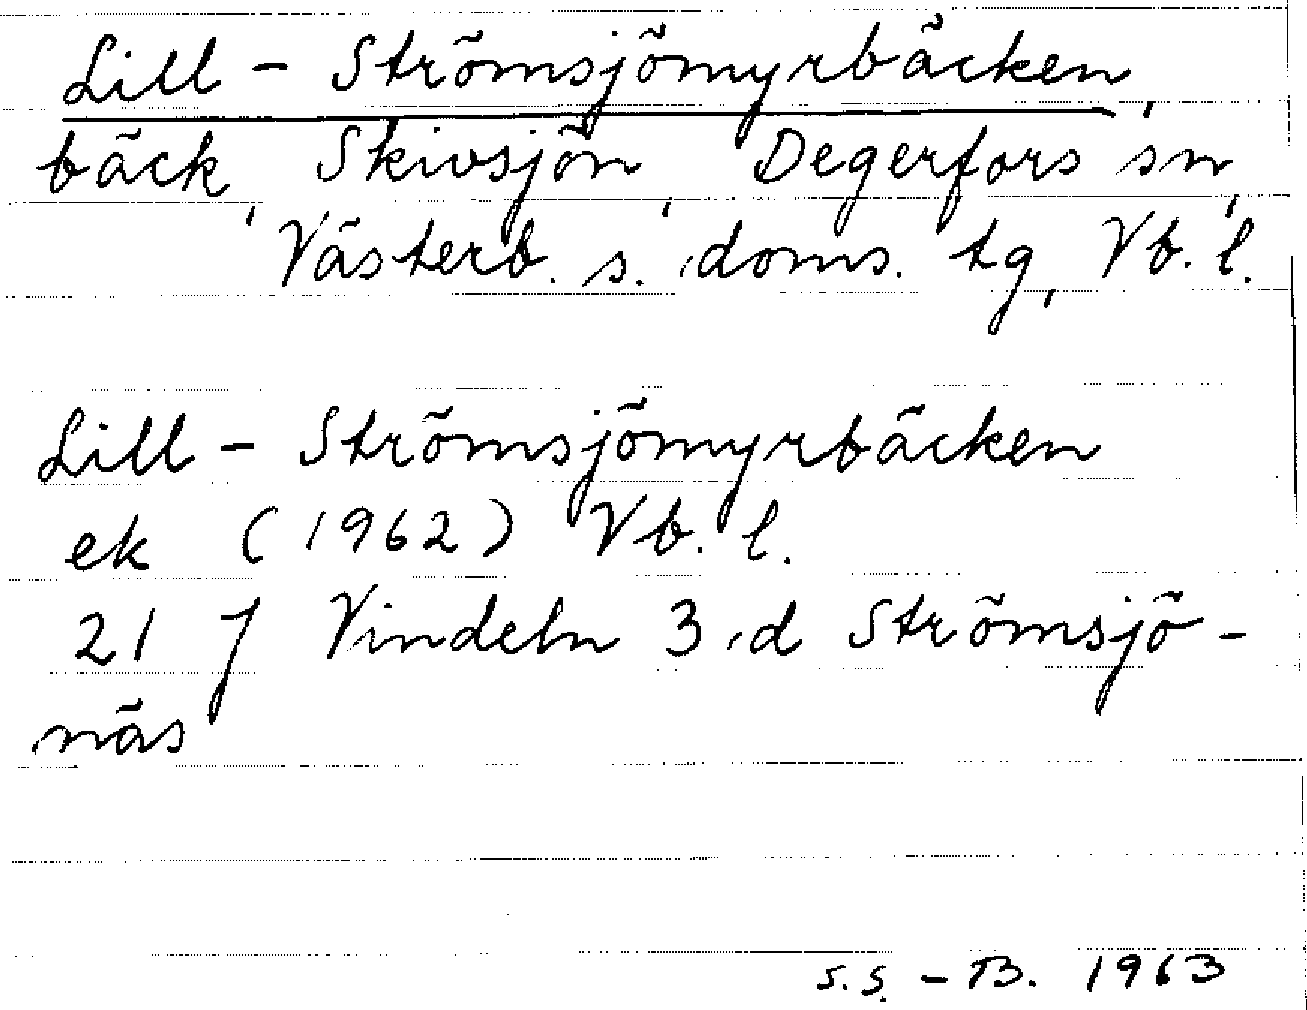 Lill - Strömsjömyrbäcken,
bäck, Skivsjön, Degerfors sn,
Västerb. s. doms. tg, Vb. l.
Lill - Strömsjömyrbäcken
ek (1962) Vb. l.
21 J Vindeln 3 d Strömsjö-
näs
S.S. - B. 1963